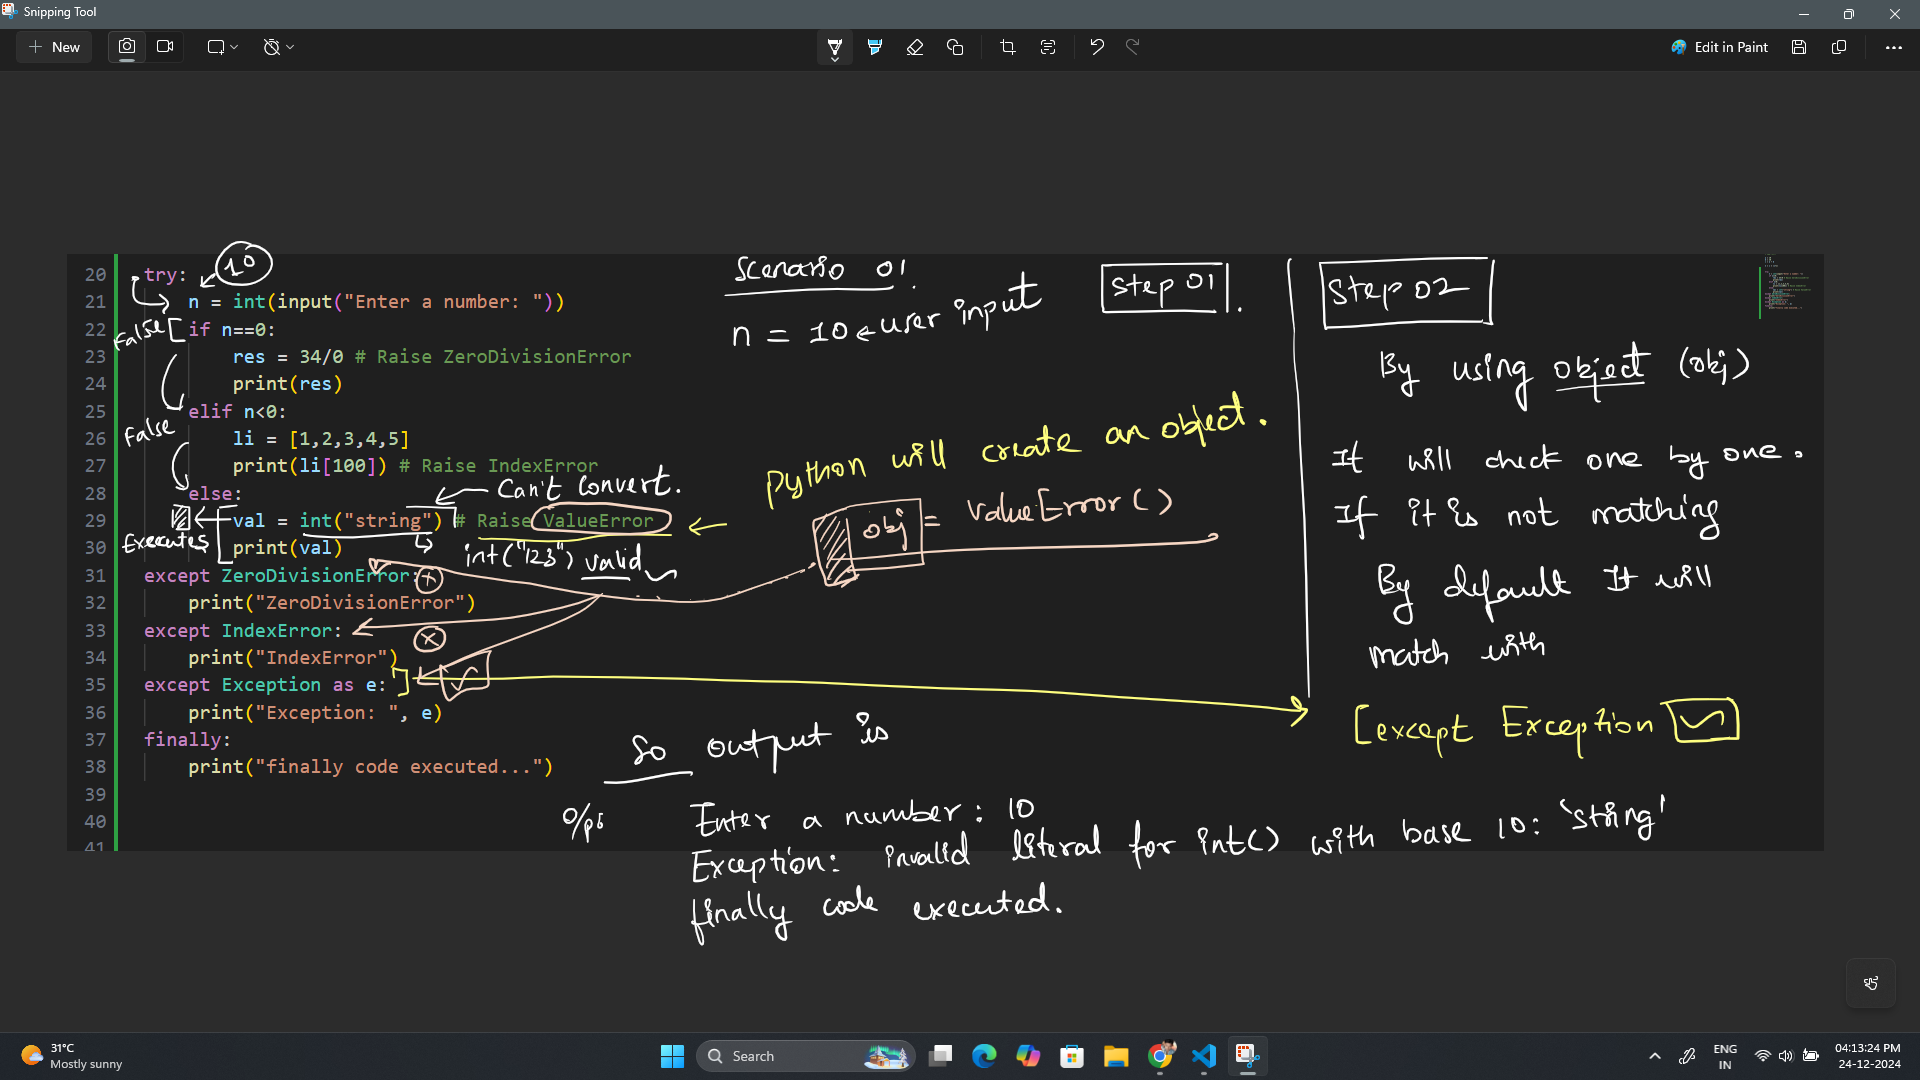 Snipping Tool
New
Edit in Paint
20 try:
10
21 n = int(input("Enter a number: "))
22 if n==0:
False
23 res = 34/0 # Raise ZeroDivisionError
24 print(res)
25 elif n<0:
False
26 li = [1,2,3,4,5]
27 print(li[100]) # Raise IndexError
28 else:
Can't Convert.
29 val = int("string") # Raise ValueError
Executes
30 print(val)
int("123") valid
31 except ZeroDivisionError:
32 print("ZeroDivisionError")
33 except IndexError:
34 print("IndexError")
35 except Exception as e:
36 print("Exception: ", e)
37 finally:
38 print("finally code executed...")
39
40
41
Scenario 01.
Step 01.
n = 10 ← user input
python will create an object.
obj = ValueError()
Step 02
By using object (obj)
It will check one by one.
If it is not matching
By default It will
match with
[except Exception
So output is
O/p:
Enter a number: 10
Exception: invalid literal for int() with base 10: 'string'
finally code executed.
31°C
Mostly sunny
Search
ENG
IN
04:13:24 PM
24-12-2024